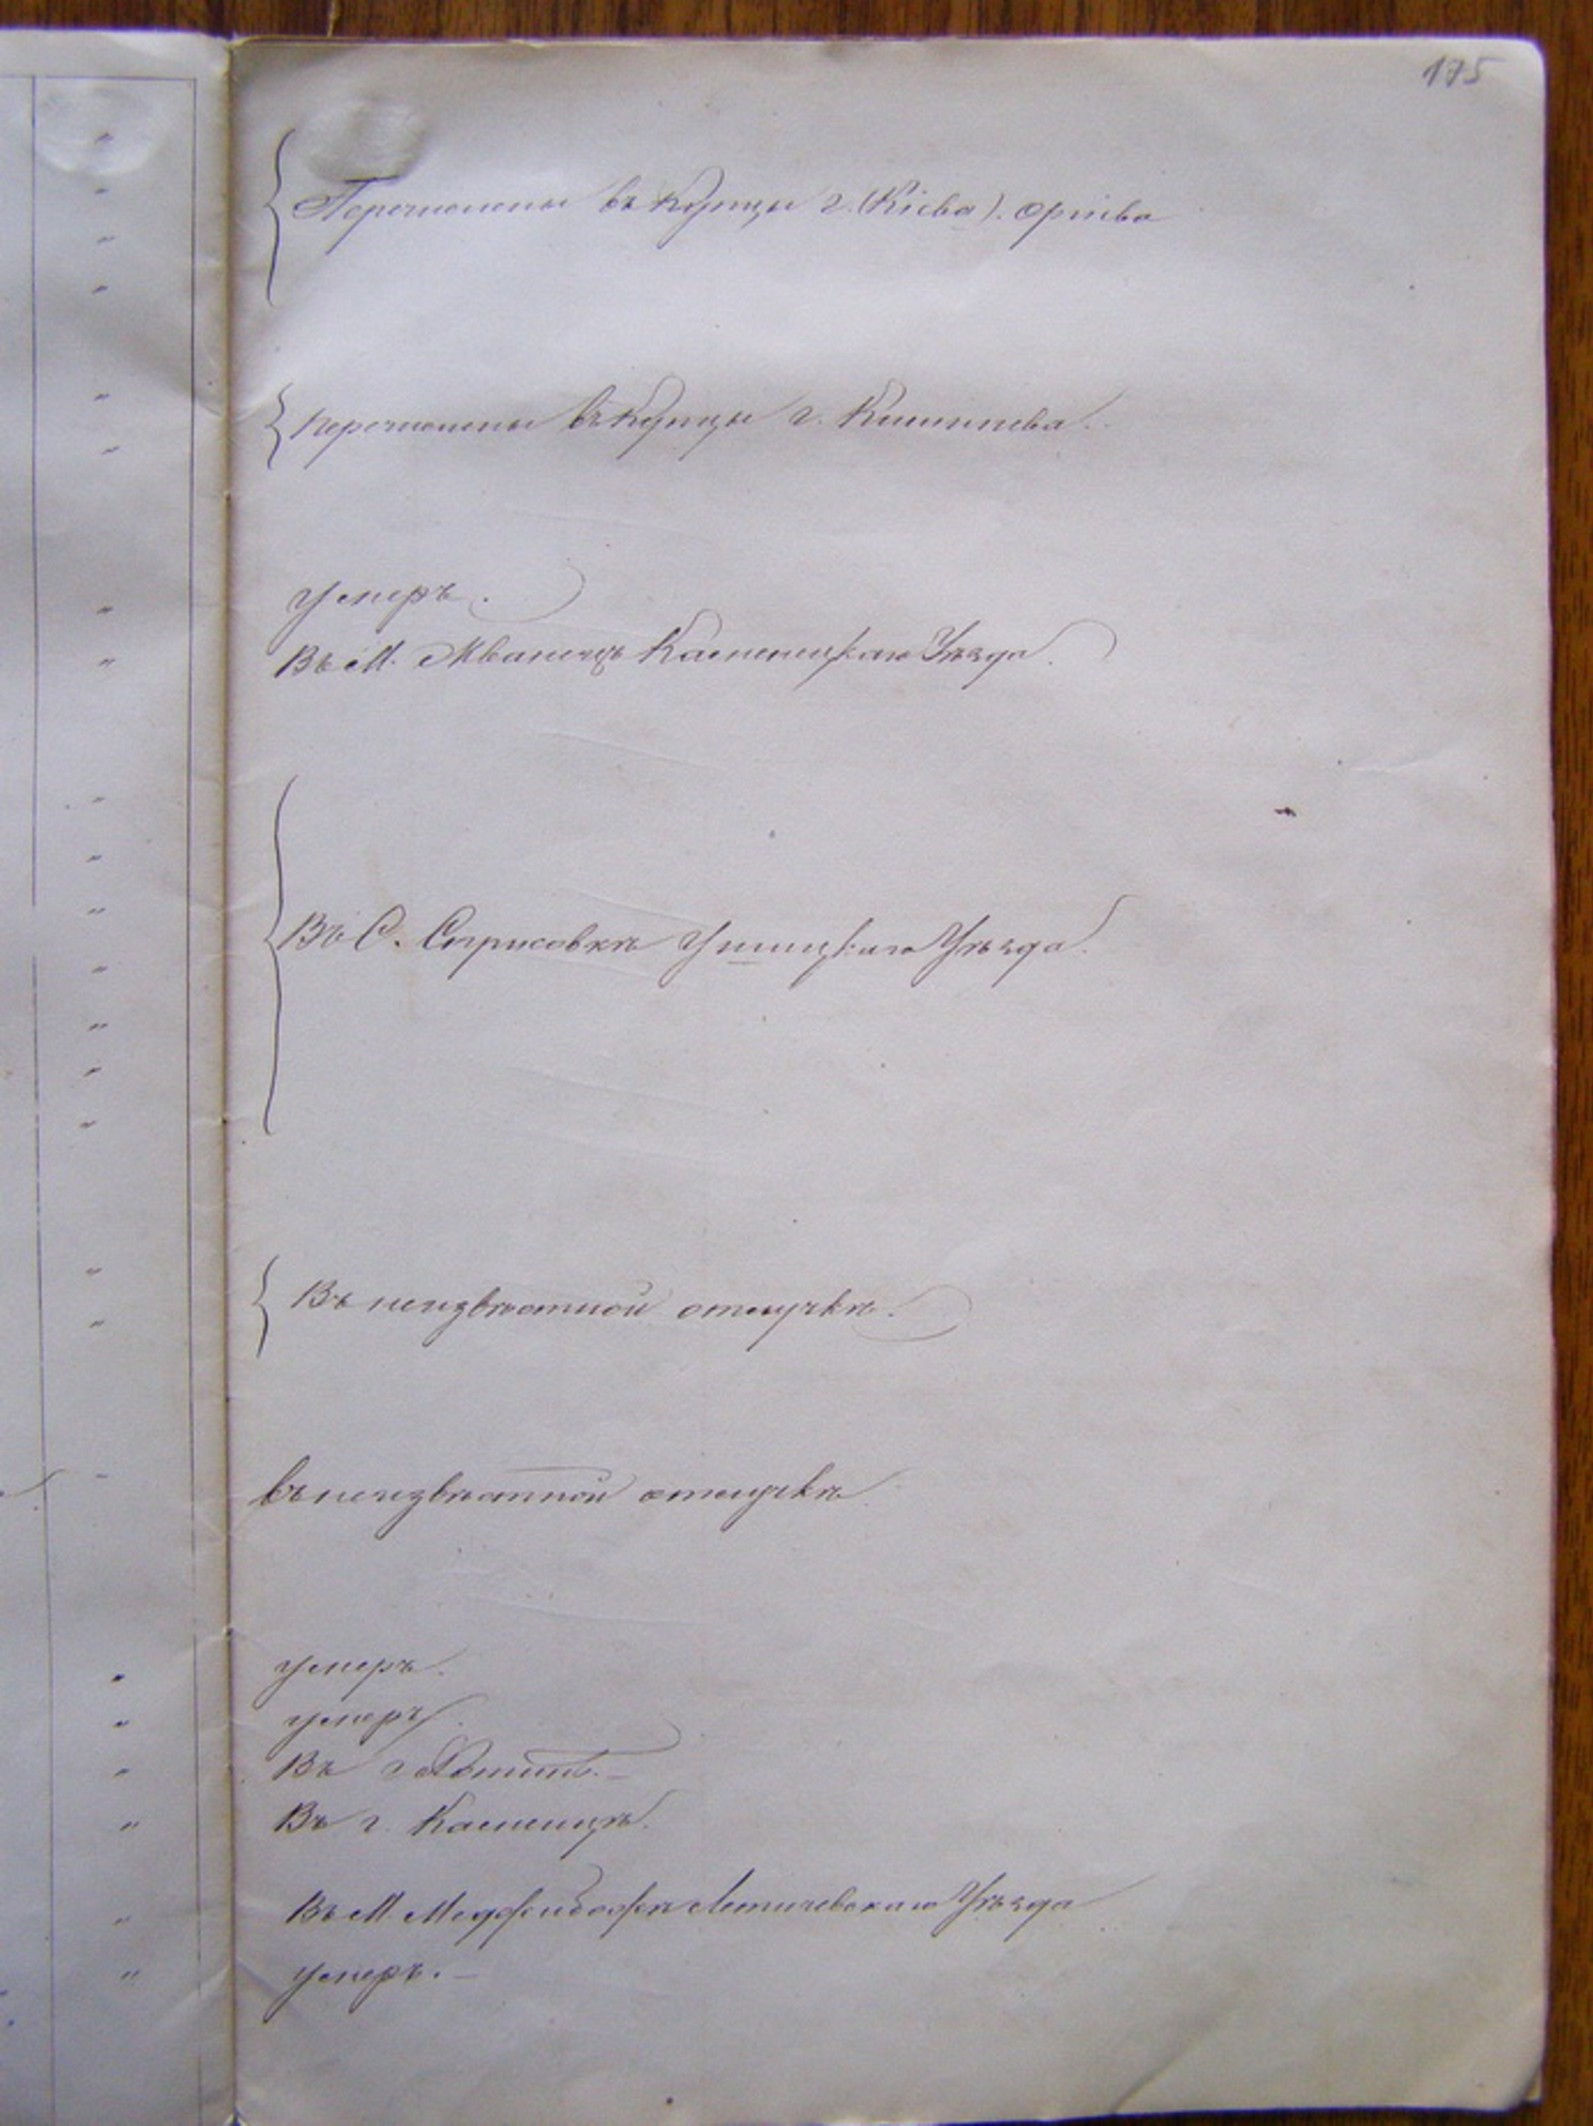 175
Перечислены въ Купцы г. (Кіева). Оргіева
перечислены въ Купцы г. Кишинева.
умеръ.
Въ М. Жванецъ Каменецкаго Уѣзда.
Въ С. Стрисовкѣ Ушицкаго Уѣзда.
Въ неизвѣстной отлучкѣ.
въ неизвѣстной отлучкѣ
умеръ.
умеръ.
Въ г. Хотинѣ.
Въ г. Каменцѣ.
Въ М. Меджибожѣ Летичевскаго Уѣзда
умеръ.